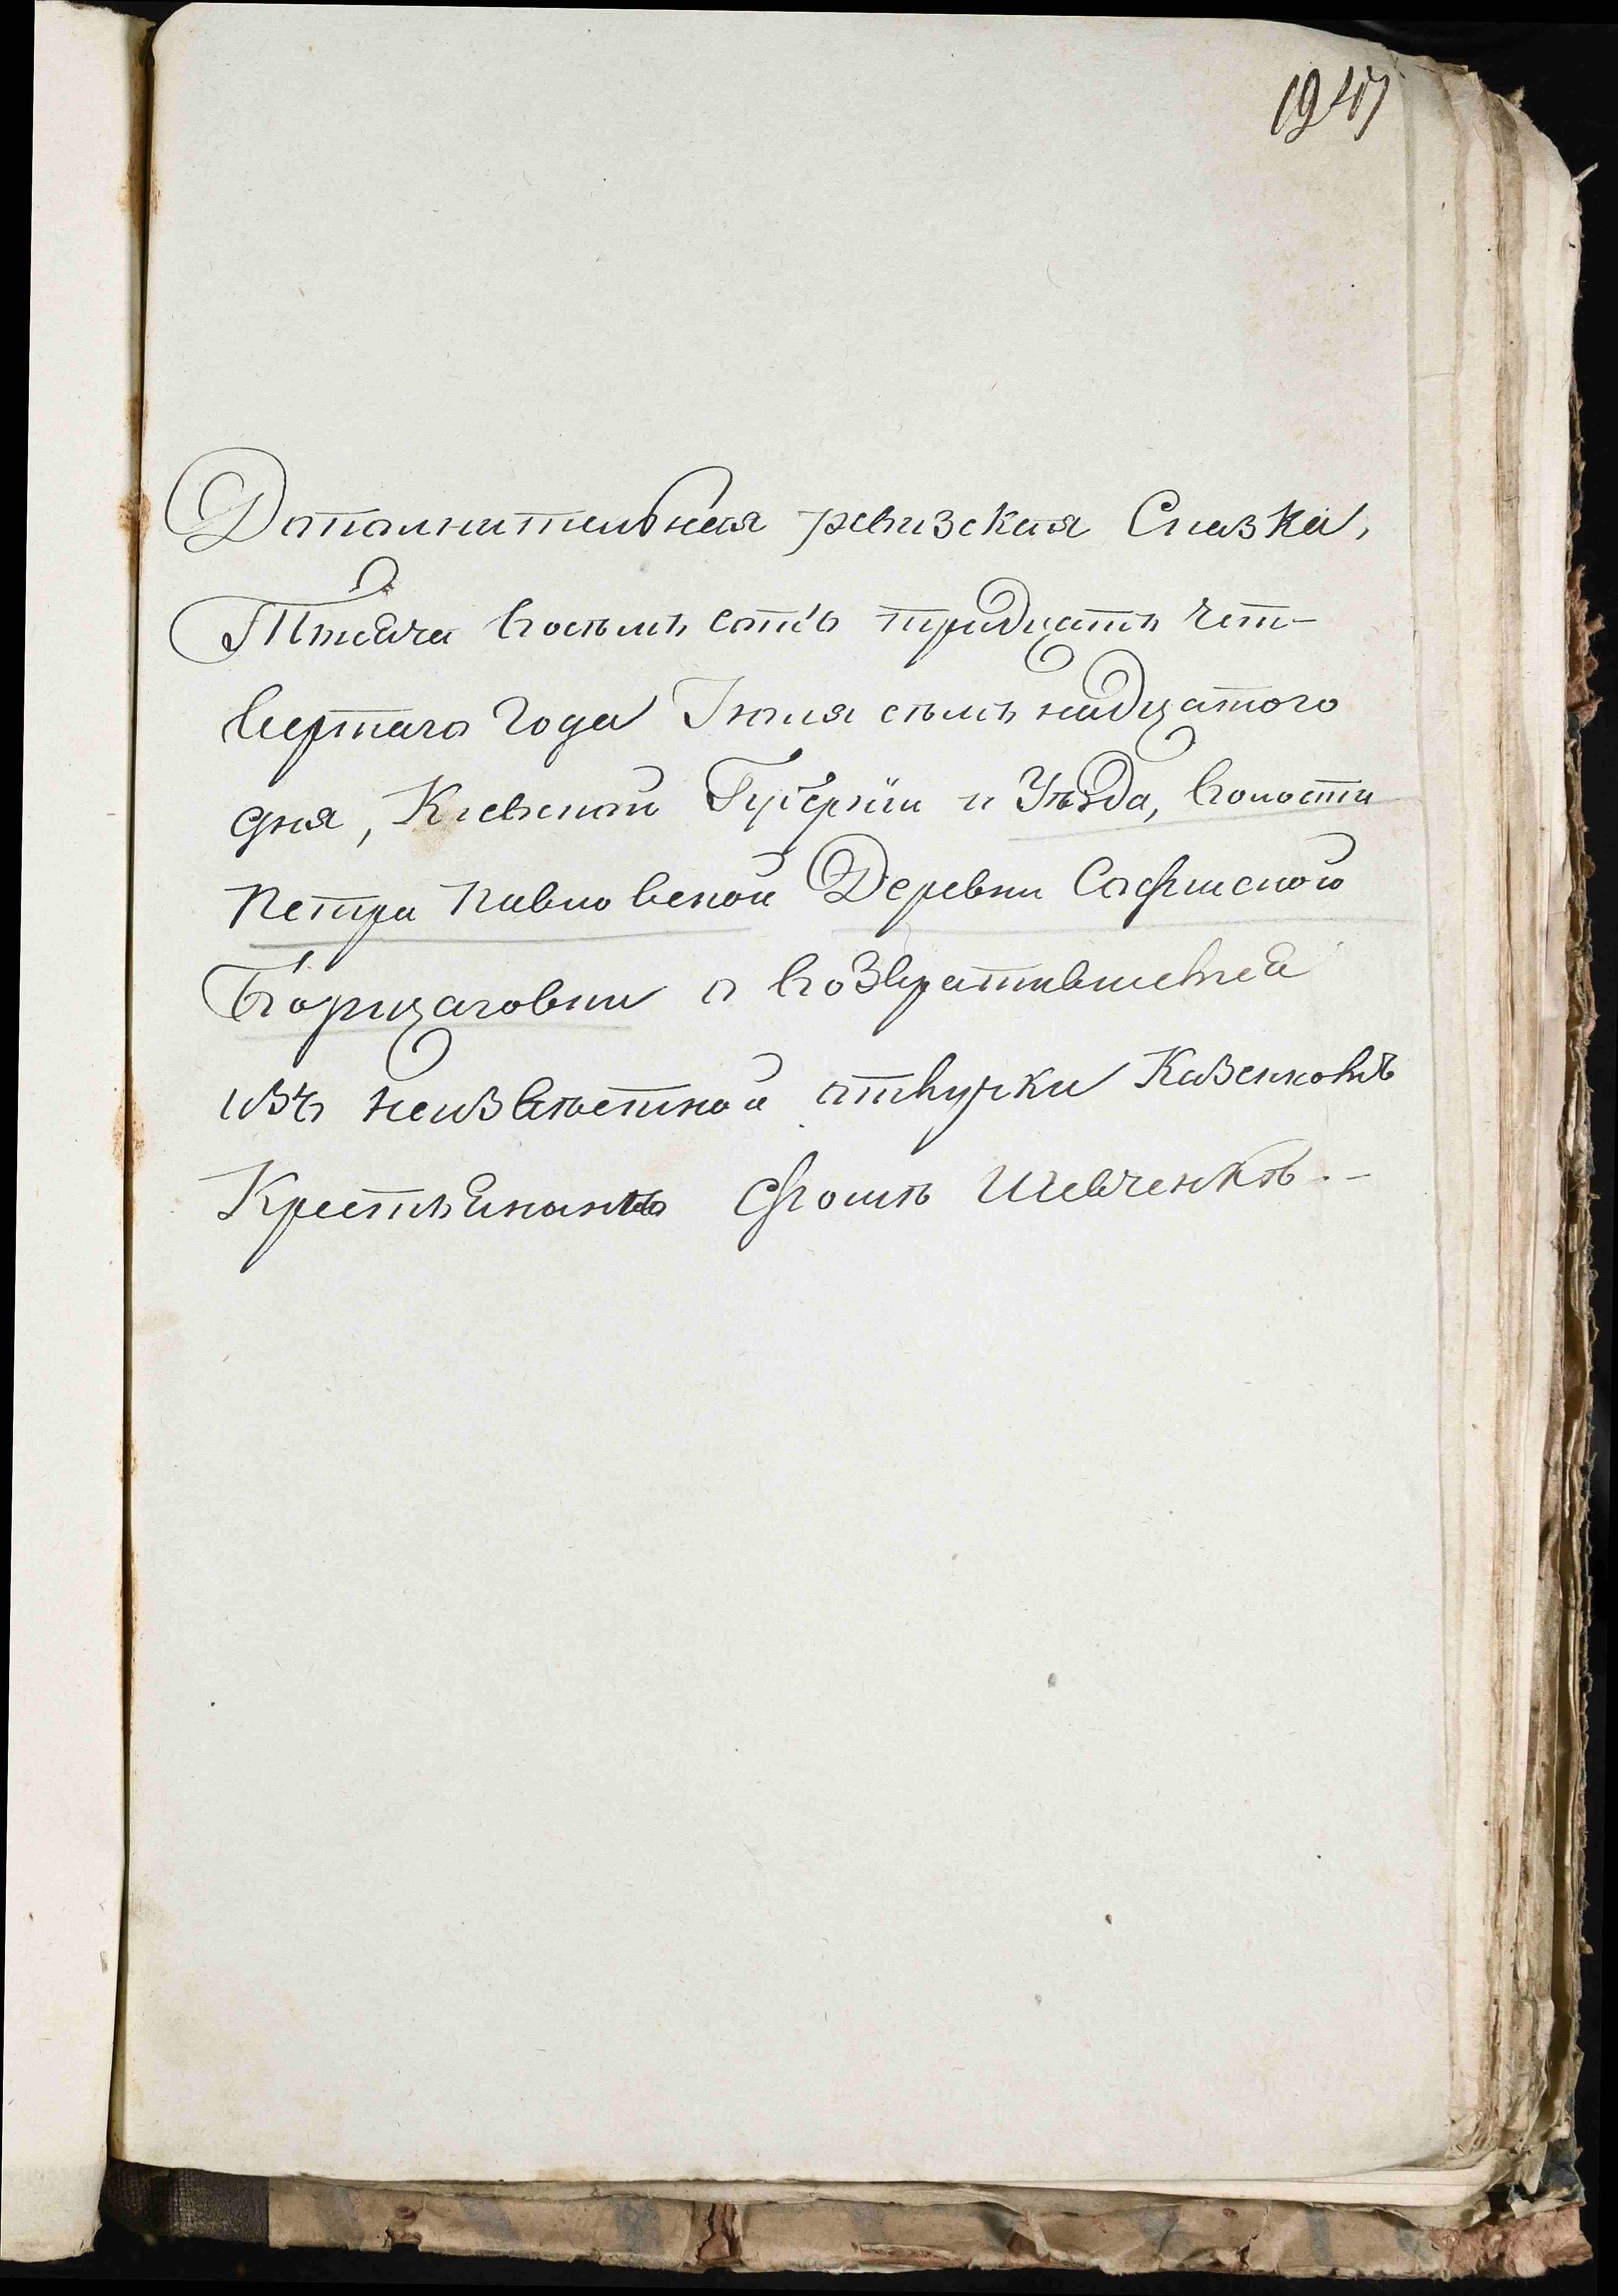 1947
Дополнительная ревизская Сказка,
Тысяча восемь сотъ тридцать чет-
вертаго года Іюля семь надцатого
дня, Кіевской Губерніи и Уѣзда, волости
Петро Павловской Деревни Софіиской
Борщаговки о возвратившемся
изъ неизвѣстной отлучки Казенномъ
Крестьянинѣ Ѳомѣ Шевченкѣ. –